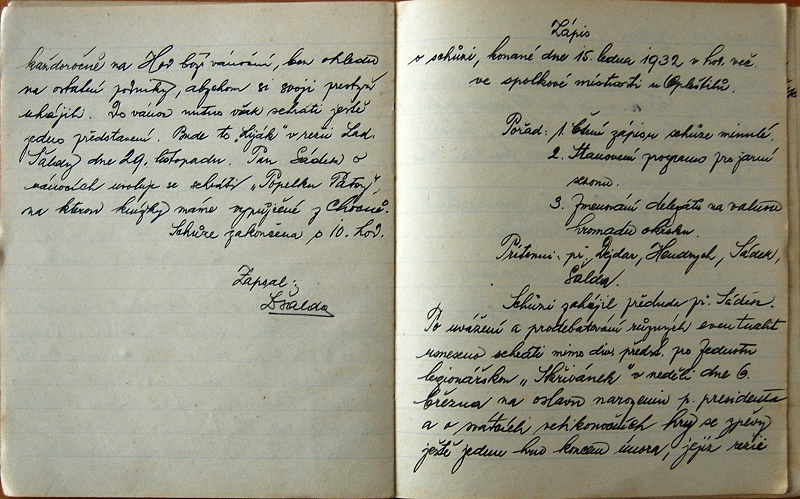 každoročně na Hod boží vánoční, bez ohledu
na ostatní podniky, abychom si svoji prestyž
uhájili. Do vánoc nutno však sehráti ještě
jedno představení. Bude to „Liják" v režii Lad.
Šaldy dne 29. listopadu. Pan Sádek o
vánocích uvoluje se sehráti „Popelku
na kterou knížky máme vypůjčené z Chocně.
Schůze zakončena o 10. hod.
Zapsal:
LŠalda
Zápis
o schůzi, konané dne 15. ledna 1932 v hod. več.
ve spolkové místnosti u Opletštilů.
Pořad: 1. Čtení zápisu schůze minulé.
2. Stanovení programu pro jarní
sezonu.
3. Jmenování delegáta na valnou
hromadu okrsku.
Přítomni: př. Dejdar, Heudrych, Sádek,
Šalda.
Schůzi zahájil předseda př. Sádek.
Po uvážení a prodebatování různých eventualit
usneseno sehráti mimo div. předst. pro Jednotu
legionářskou „Skřivánek" v neděli dne 6.
března na oslavu narozenin p. presidenta
a o svátcích velikonočních hru se zpěvy
ještě jednu hru koncem února, jejíž režie